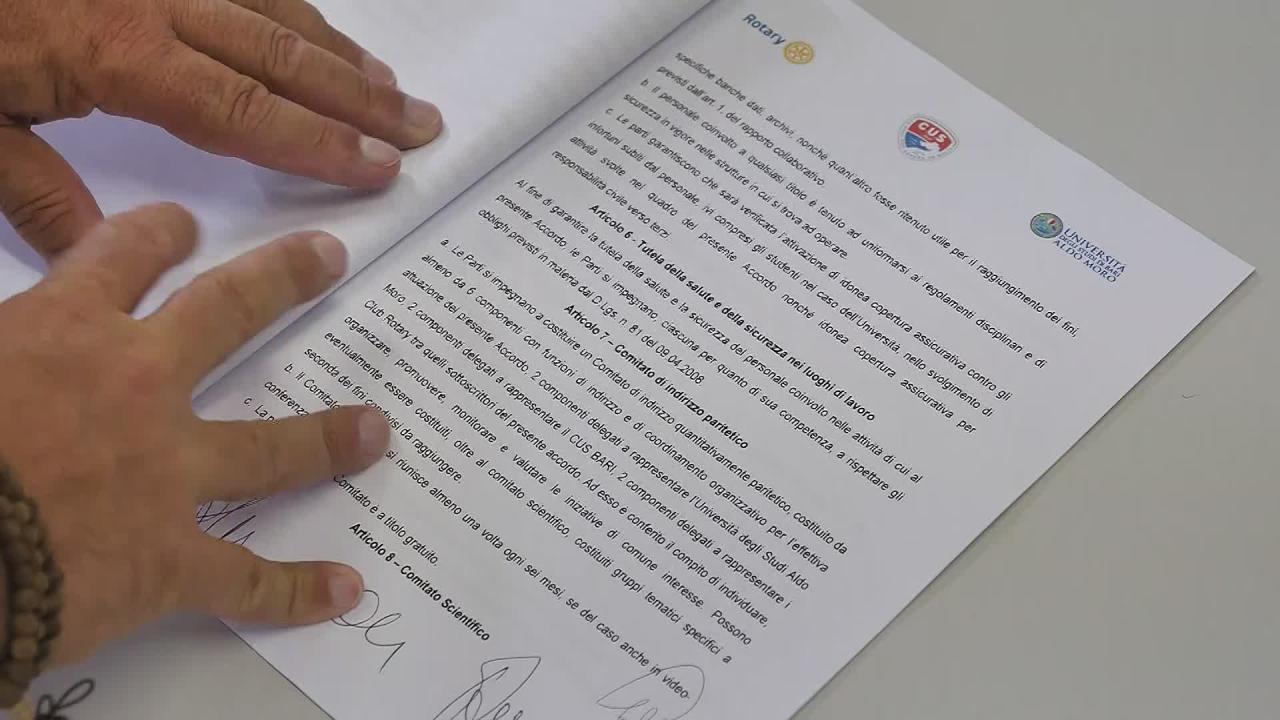 Rotary
CUS
UNIVERSITÀ
DEGLI STUDI DI BARI
ALDO MORO
specifiche banche dati, archivi, nonché quant'altro fosse ritenuto utile per il raggiungimento dei fini,
previsti dall'art. 1, del rapporto collaborativo.
b. Il personale coinvolto a qualsiasi titolo è tenuto ad uniformarsi ai regolamenti disciplinari e di
sicurezza in vigore nelle strutture in cui si trova ad operare.
c. Le parti garantiscono che sarà verificata l'attivazione di idonea copertura assicurativa contro gli
infortuni subiti dal personale, ivi compresi gli studenti nel caso dell'Università, nello svolgimento di
attività svolte nel quadro del presente Accordo nonché idonea copertura assicurativa per
responsabilità civile verso terzi.
Articolo 6 - Tutela della salute e della sicurezza nei luoghi di lavoro
Al fine di garantire la tutela della salute e la sicurezza del personale coinvolto nelle attività di cui al
presente Accordo, le Parti si impegnano, ciascuna per quanto di sua competenza, a rispettare gli
obblighi previsti in materia dal D.Lgs. n. 81 del 09.04.2008
Articolo 7 – Comitato di indirizzo paritetico
a. Le Parti si impegnano a costituire un Comitato di indirizzo quantitativamente paritetico, costituito da
almeno da 6 componenti con funzioni di indirizzo e di coordinamento organizzativo per l'effettiva
attuazione del presente Accordo, 2 componenti delegati a rappresentare l'Università degli Studi Aldo
Moro, 2 componenti delegati a rappresentare il CUS BARI, 2 componenti delegati a rappresentare i
Club Rotary tra quelli sottoscrittori del presente accordo. Ad esso è conferito il compito di individuare,
organizzare, promuovere, monitorare e valutare le iniziative di comune interesse. Possono
eventualmente essere costituiti, oltre al comitato scientifico, costituiti gruppi tematici specifici a
seconda dei fini condivisi da raggiungere.
b. Il Comitato si riunisce almeno una volta ogni sei mesi, se del caso anche in video-
conferenza
c. La Comitato è a titolo gratuito.
Articolo 8 – Comitato Scientifico